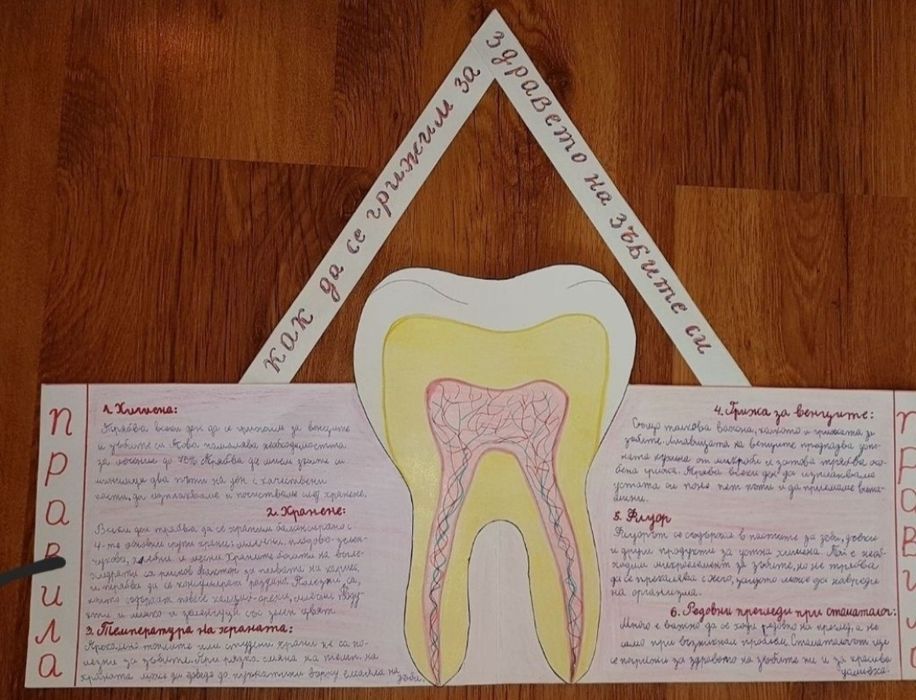 как да се грижим за
здравето на зъбите си
правила
1. Хигиена:
Трябва всеки ден да се грижим за венците
и зъбите си. Това намалява необходимостта
за лечение до 75%. Трябва да мием зъбите си
минимум два пъти на ден с качествени
пасти, да изплакваме и почистваме след хранене.
2. Хранене:
Всеки ден трябва да се храним балансирано с
4-те основни групи храни: млечни, плодово-зелен-
чукова, хлебни и месни. Храните богати на въгле-
хидрати са рисков фактор за появата на кариес
и трябва да се консумират разумно. Полезни са,
които съдържат повече калций - орехи, млечни
и мляко и зеленчуци със зелен цвят.
3. Температура на храната:
Прекалено топлите или студени храни не са по-
лезни за зъбите. При рязка смяна на темп. на
храната може да доведе до пукнатини върху емайла на
зъба.
4. Грижа за венците:
Също толкова важна, както и грижата за
зъбите. Лигавицата на венците предпазва уст-
ната кухина от микроби и затова трябва осо-
бена грижа. Трябва всеки ден да изплакваме
устата си поне пет пъти и да приемаме вита-
мини.
5. Флуор
Флуорът се съдържа в пастите за зъби, дъвки
и други продукти за устна хигиена. Той е необ-
ходим микроелемент за зъбите, но не трябва
да се прекалява с него, защото може да навреди
на организма.
6. Редовни прегледи при стоматолог:
Много е важно да се ходи редовно на преглед, а не
само при възникнал проблем. Стоматологът ще
се погрижи за здравето на зъбите ти и за красива
усмивка.